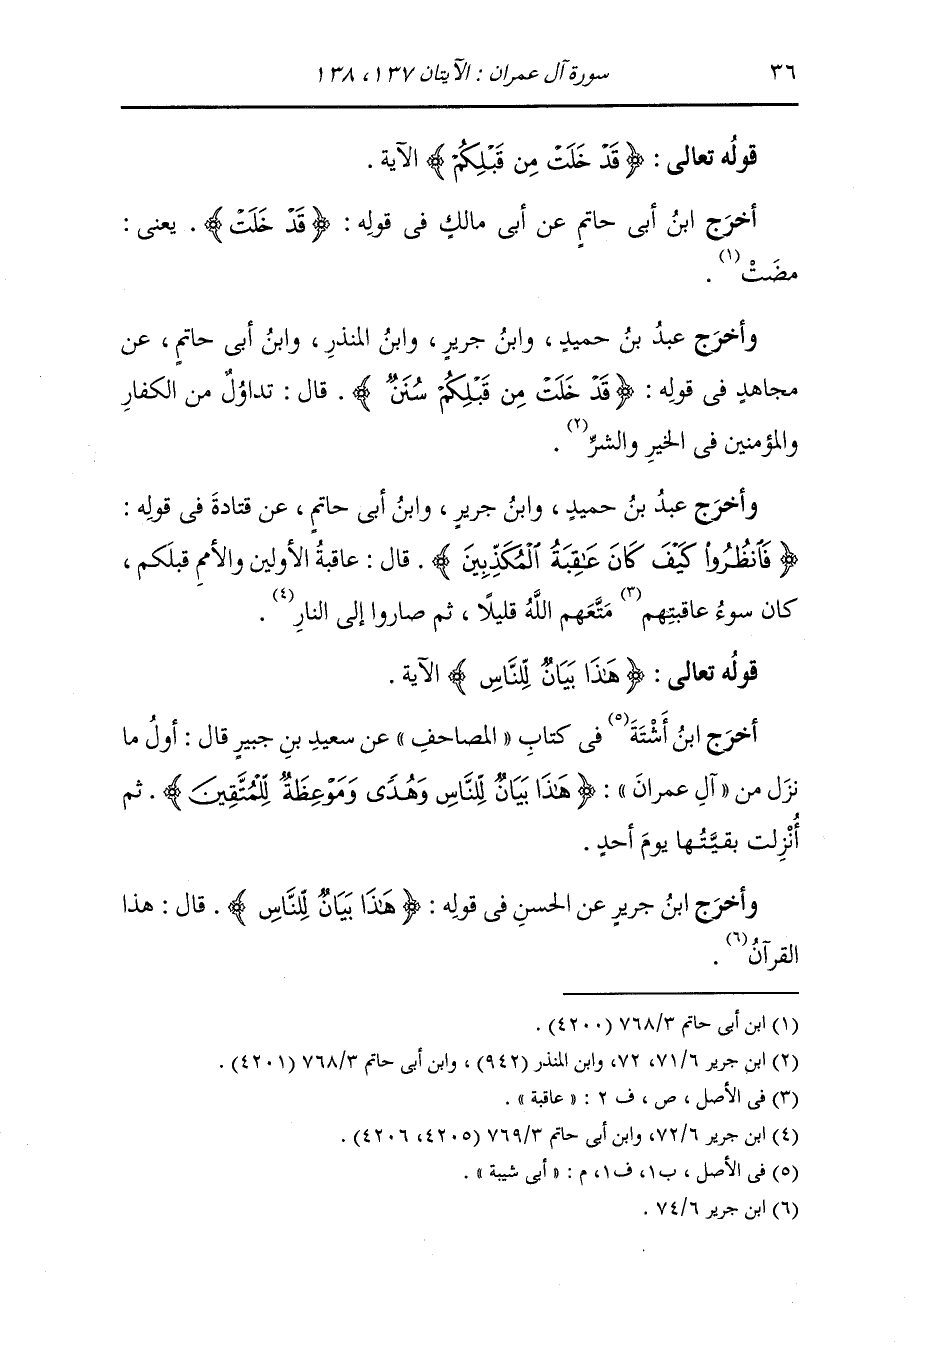 ٣٦ سورة آل عمران : الآيتان ١٣٧، ١٣٨
قولُه تعالى : ﴿ قَدْ خَلَتْ مِن قَبْلِكُمْ ﴾ الآية .
أخرَج ابنُ أبى حاتمٍ عن أبى مالكٍ فى قولِه : ﴿ قَدْ خَلَتْ ﴾ . يعنى :
مضَتْ(١) .
وأخرَج عبدُ بنُ حميدٍ ، وابنُ جريرٍ ، وابنُ المنذرِ ، وابنُ أبى حاتمٍ ، عن
مجاهدٍ فى قولِه : ﴿ قَدْ خَلَتْ مِن قَبْلِكُمْ سُنَنٌ ﴾ . قال : تداوُلٌ من الكفارِ
والمؤمنين فى الخيرِ والشرِّ(٢) .
وأخرَج عبدُ بنُ حميدٍ ، وابنُ جريرٍ ، وابنُ أبى حاتمٍ ، عن قتادةَ فى قولِه :
﴿ فَٱنظُرُوا۟ كَيْفَ كَانَ عَٰقِبَةُ ٱلْمُكَذِّبِينَ ﴾ . قال : عاقبةُ الأولين والأممِ قبلَكم ،
كان سوءُ عاقبتِهم(٣) مَتَّعَهم اللَّهُ قليلًا ، ثم صاروا إلى النارِ(٤) .
قولُه تعالى : ﴿ هَٰذَا بَيَانٌ لِّلنَّاسِ ﴾ الآية .
أخرَج ابنُ أَشْتَةَ(٥) فى كتابِ « المصاحفِ » عن سعيدِ بنِ جبيرٍ قال : أولُ ما
نزَل من « آلِ عمرانَ » : ﴿ هَٰذَا بَيَانٌ لِّلنَّاسِ وَهُدًى وَمَوْعِظَةٌ لِّلْمُتَّقِينَ ﴾ . ثم
أُنْزِلت بقيَّتُها يومَ أحدٍ .
وأخرَج ابنُ جريرٍ عن الحسنِ فى قولِه : ﴿ هَٰذَا بَيَانٌ لِّلنَّاسِ ﴾ . قال : هذا
القرآنُ(٦) .
(١) ابن أبى حاتم ٧٦٨/٣ (٤٢٠٠) .
(٢) ابن جرير ٧١/٦، ٧٢، وابن المنذر (٩٤٢) ، وابن أبى حاتم ٧٦٨/٣ (٤٢٠١) .
(٣) فى الأصل ، ص ، ف ٢ : « عاقبة » .
(٤) ابن جرير ٧٢/٦، وابن أبى حاتم ٧٦٩/٣ (٤٢٠٥، ٤٢٠٦) .
(٥) فى الأصل ، ب١، ف١، م : « أبى شيبة » .
(٦) ابن جرير ٧٤/٦ .